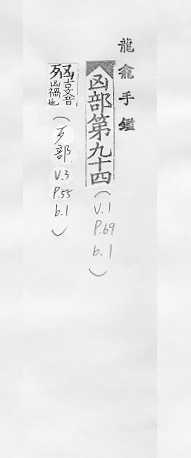 龍龕手鑑
凶部第九十四
(V.1
P.69
b.1)
音
禍也
(歹部
V.3
P.55
b.1)